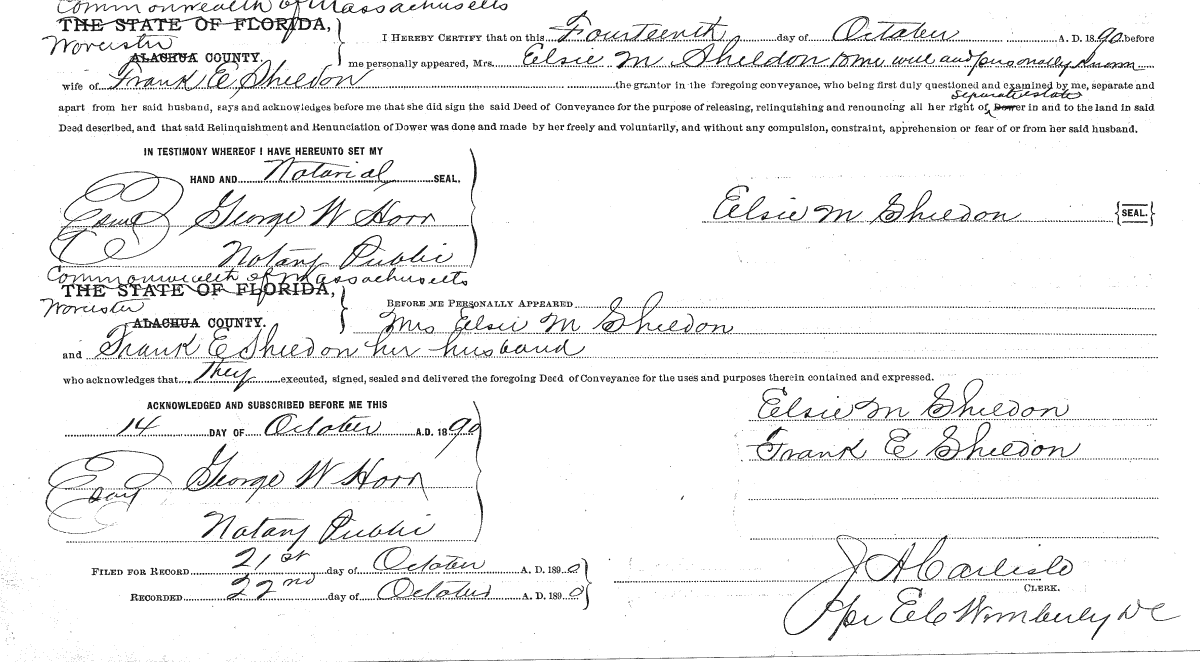 Commonwealth of Massachusetts
THE STATE OF FLORIDA,
Worcester
ALACHUA COUNTY.
I HEREBY CERTIFY that on this Fourteenth day of October A. D. 1890 before
me personally appeared, Mrs. Elsie M Sheldon to me well and personally known
wife of Frank E Sheldon the grantor in the foregoing conveyance, who being first duly questioned and examined by me, separate and
separate estate
apart from her said husband, says and acknowledges before me that she did sign the said Deed of Conveyance for the purpose of releasing, relinquishing and renouncing all her right of Dower in and to the land in said
Deed described, and that said Relinquishment and Renunciation of Dower was done and made by her freely and voluntarily, and without any compulsion, constraint, apprehension or fear of or from her said husband.
IN TESTIMONY WHEREOF I HAVE HEREUNTO SET MY
HAND AND Notarial SEAL.
George W Horr
Elsie M Sheldon {SEAL.}
Notary Public
Commonwealth of Massachusetts
THE STATE OF FLORIDA,
Worcester
ALACHUA COUNTY.
BEFORE ME PERSONALLY APPEARED
Mrs Elsie M Sheldon
and Frank E Sheldon her husband
who acknowledges that they executed, signed, sealed and delivered the foregoing Deed of Conveyance for the uses and purposes therein contained and expressed.
ACKNOWLEDGED AND SUBSCRIBED BEFORE ME THIS
14 DAY OF October A.D. 1890
Elsie M Sheldon
Frank E Sheldon
George W Horr
Notary Public
FILED FOR RECORD 21st day of October A. D. 1890
RECORDED 22nd day of October A. D. 1890
J A Carlisle
CLERK.
per E C Wimberly DC